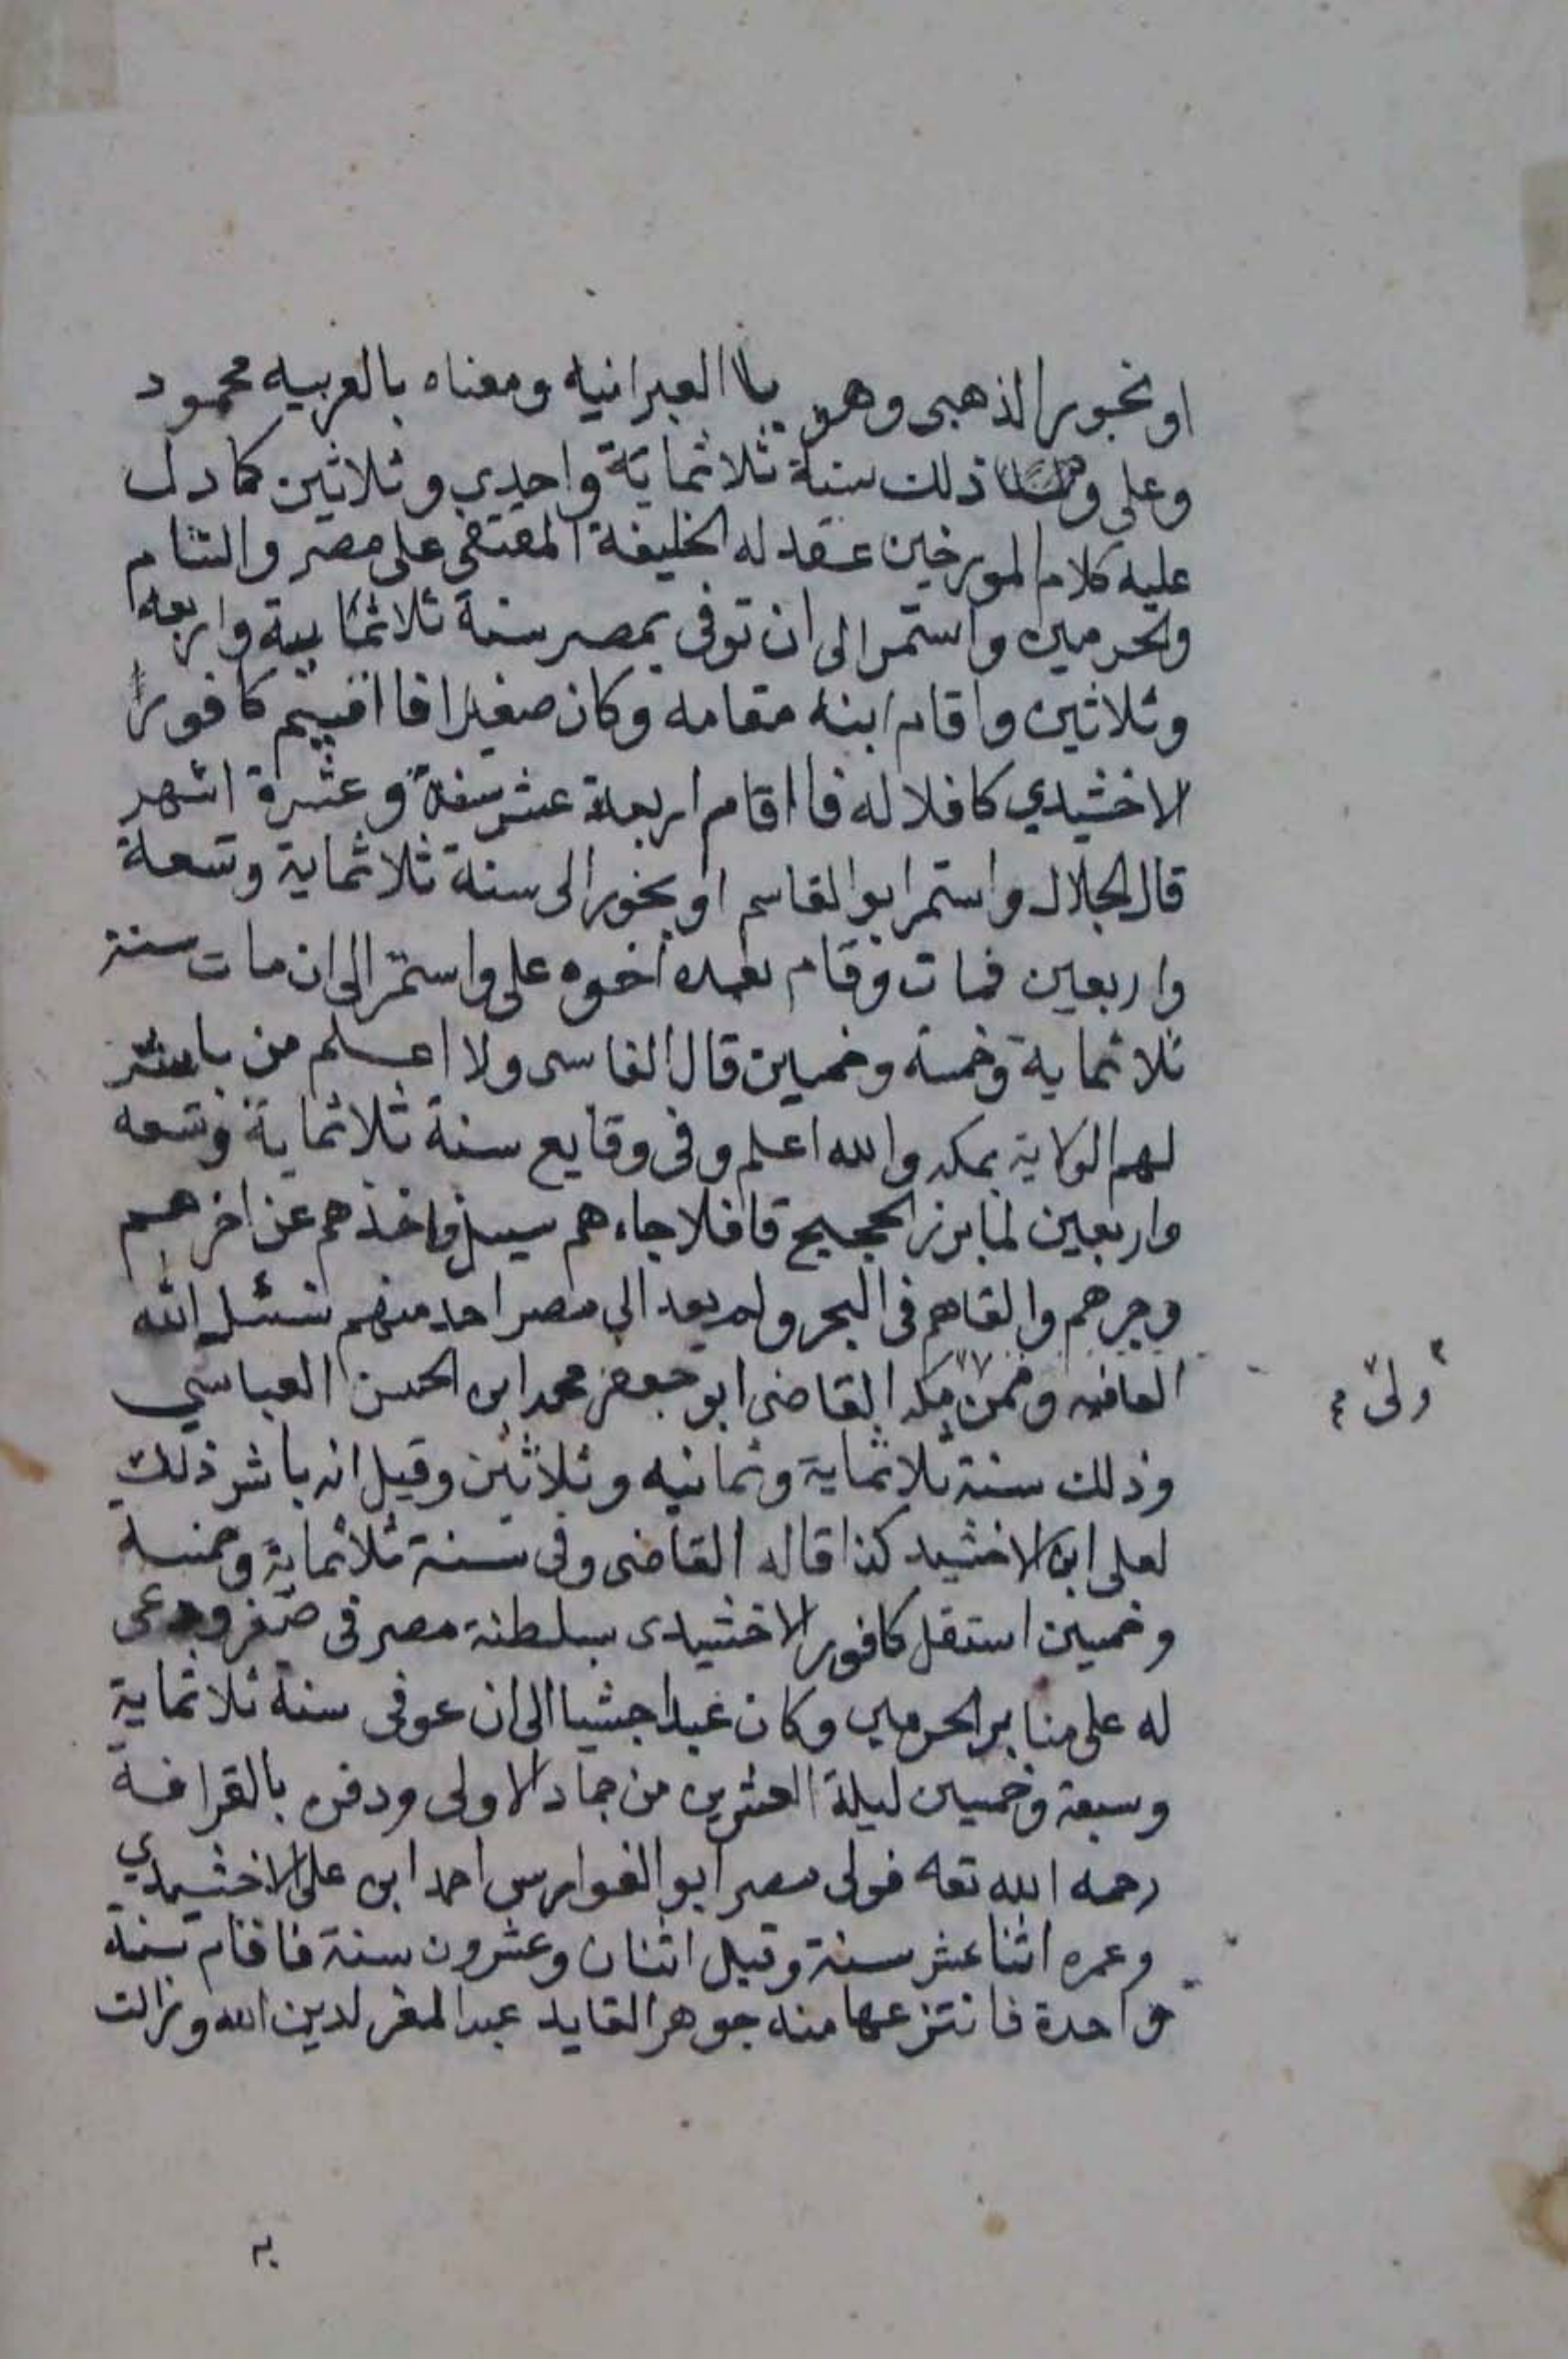 اونجور الذهبي وهو باالعبرانيه ومعناه بالعربيه محمود
وعلي ذلك سنة ثلاثماية واحدي وثلاثين كما دل
عليه كلام المورخين عقد له الخليفة المقتفي على مصر والشام
والحرمين واستمر الى ان توفى بمصر سنة ثلاثماية واربعه
وثلاثين واقام ابنه مقامه وكان صغيرا فااقيم كافورا
الاخشيدي كافلا له فااقام اربعة عشر سنة وعشرة اشهر
قال الجلال واستمر ابو القاسم اونجور الى سنة ثلاثماية وتسعة
واربعين فمات وقام بعده اخوه على واستمر الى ان مات سنة
ثلاثماية وخمسه وخمسين قال الفاسى ولا اعلم من باشر
لهم الولاية بمكه والله اعلم وفى وقايع سنة ثلاثماية وتسعه
واربعين لما برز الحجيج قافلا جاءهم سيل فاخذهم عن اخرهم
وجرهم والقاهم فى البحر ولم يعد الى مصر احد منهم نسئل الله
العافيه وممن مكه القاضى ابو جعفر محمد ابن الحسن العباسي
ولى
وذلك سنة ثلاثماية وثمانيه وثلاثين وقيل انه باشر ذلك
لعلى ابن الاخشيد كذا قاله القاضى وفى سنة ثلاثماية وخمسه
وخمسين استقل كافور الاخشيدى بسلطنة مصر فى صفر ودعى
له على منابر الحرمين وكان عبدا حبشيا الى ان توفى سنة ثلاثماية
وسبعة وخمسين ليلة العشرين من جماد الاولى ودفن بالقرافة
رحمه الله تعه فولى مصر ابو الفوارس احمد ابن على الاخشيدي
وعمره اثنا عشر سنة وقيل اثنان وعشرون سنة فاقام سنة
واحدة فانتزعها منه جوهر القايد عبد المعز لدين الله وزالت